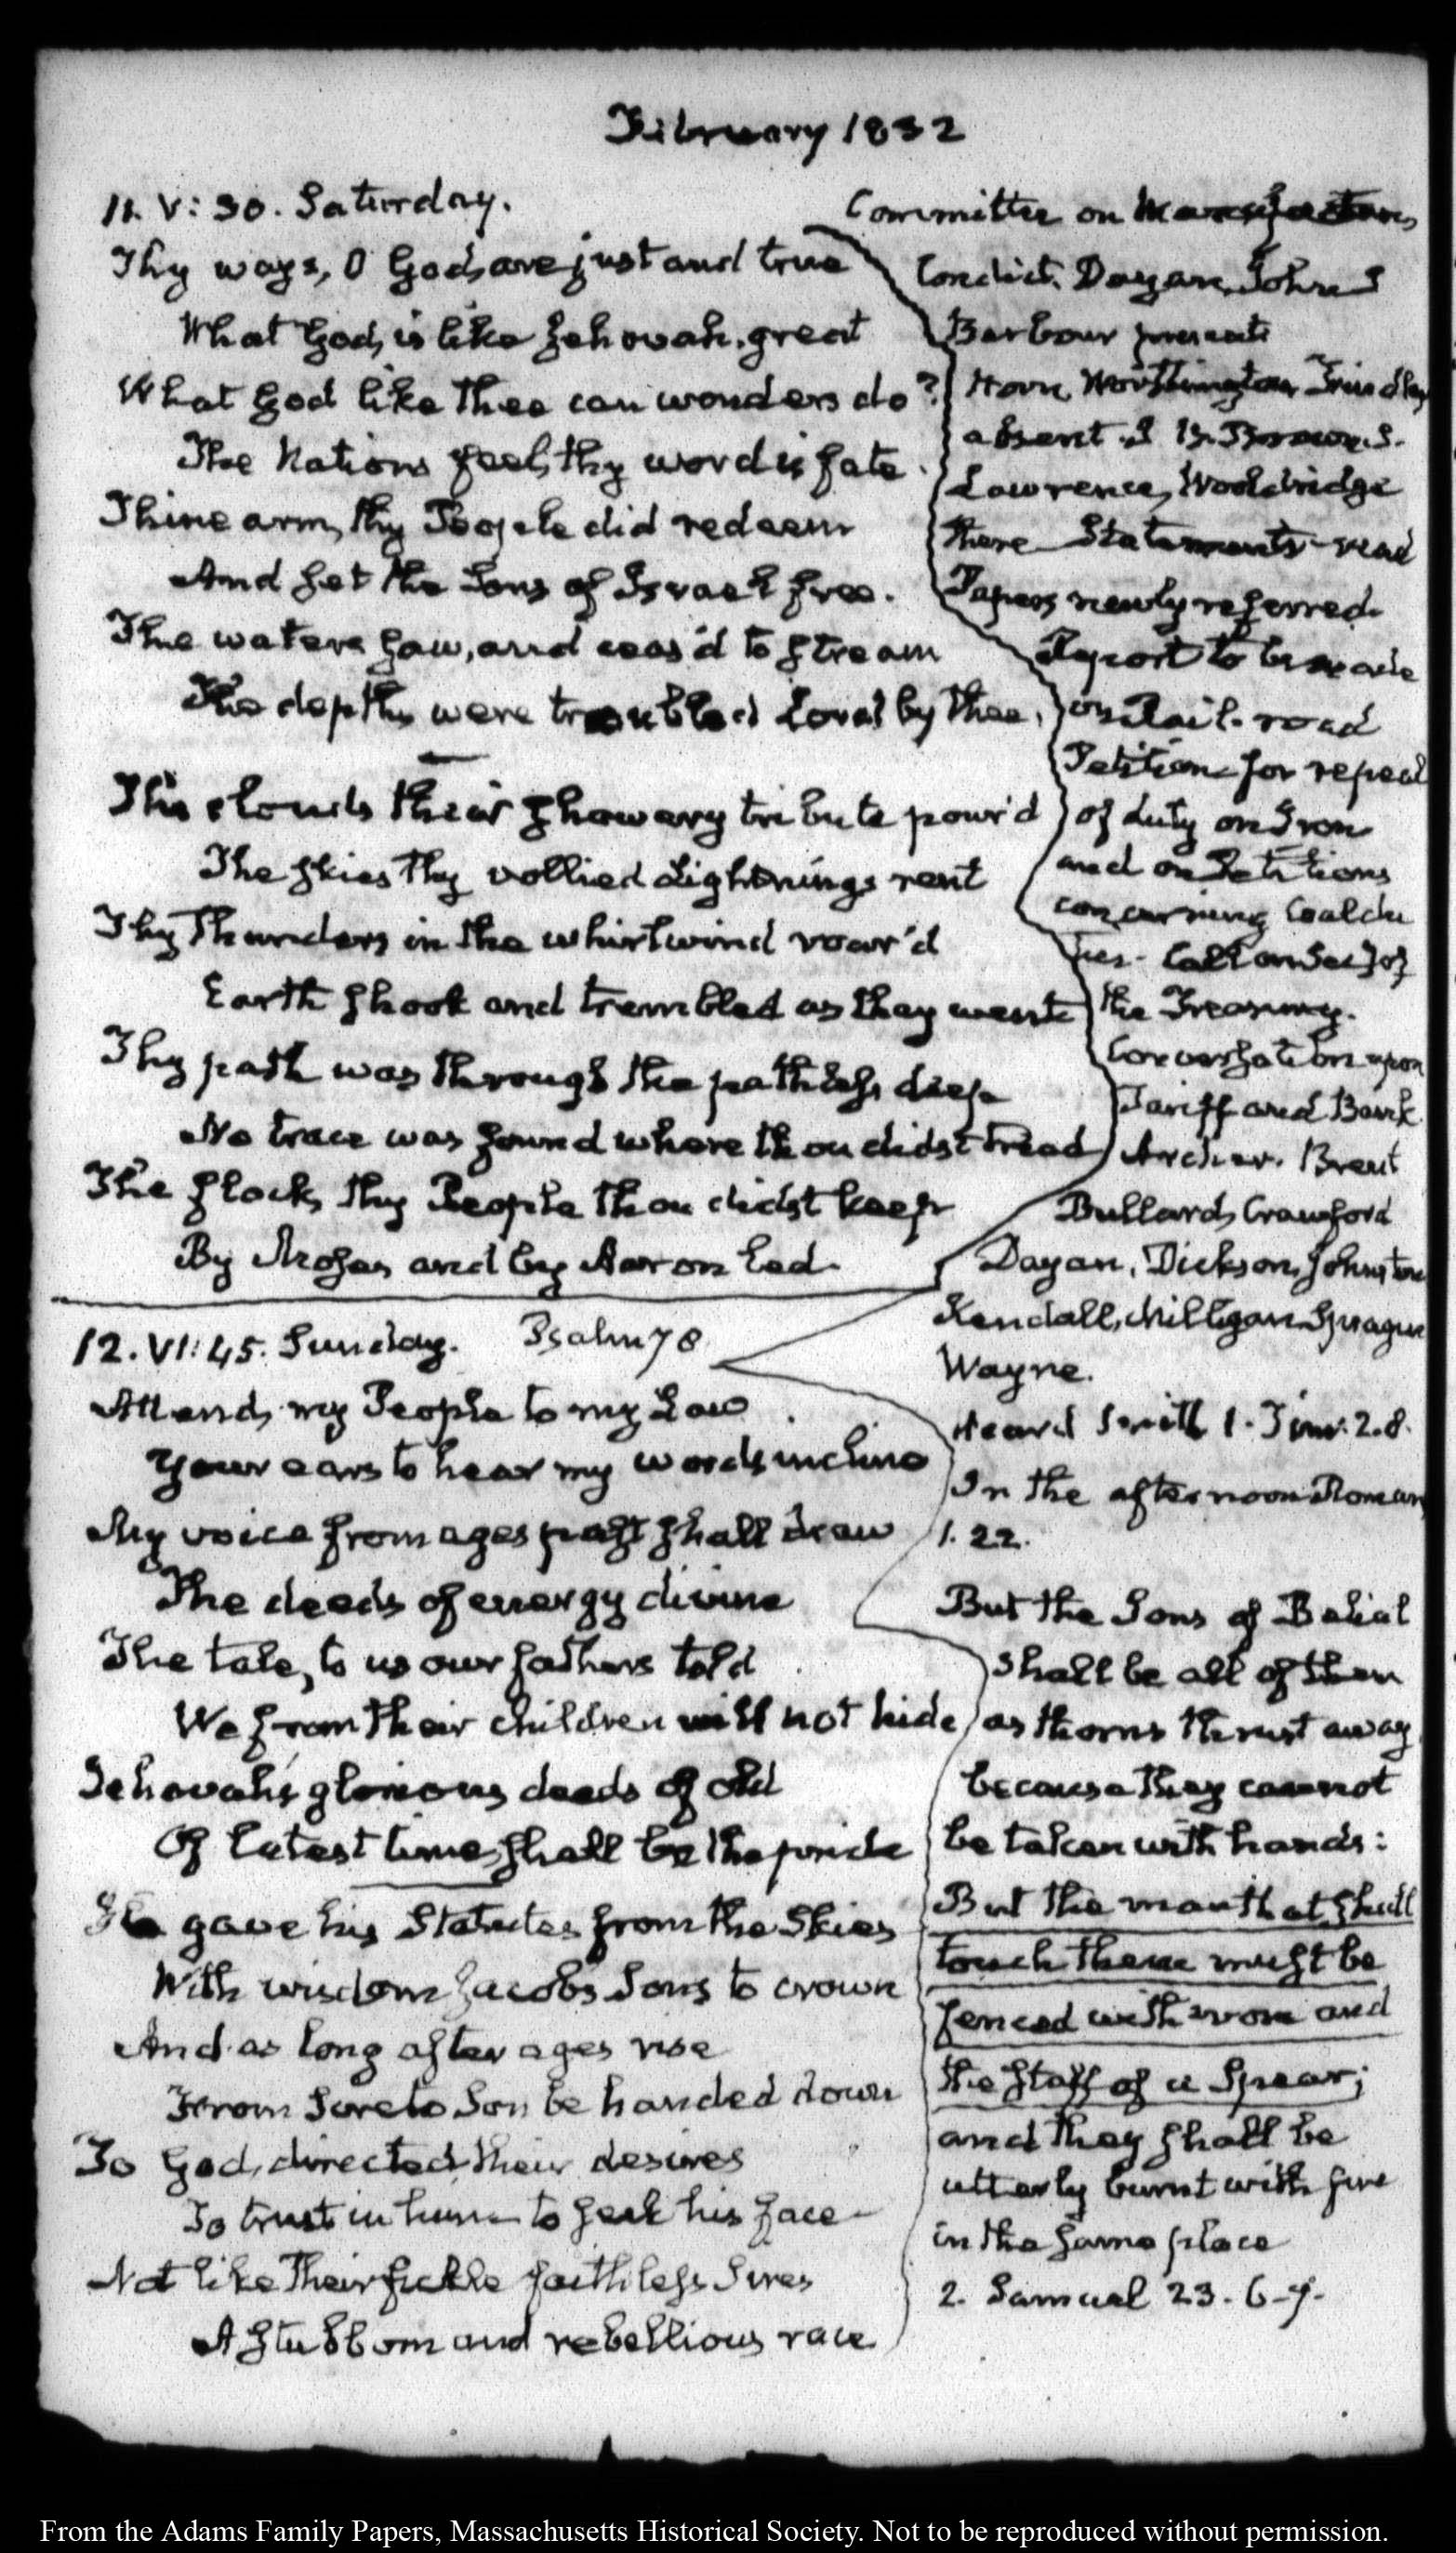 February 1832
11. V: 30. Saturday.
Thy ways, O God, are just and true
What God, is like Jehovah, great
What God like thee can wonders do?
The Nations feel, thy word is fate.
Thine arm, thy People did redeem
And set the Sons of Israel free.
The waters saw, and ceas'd to stream
The depths were troubled Lord by thee,
The clouds their showery tribute pour'd
The skies thy vollied Lightnings rent
Thy Thunders in the whirlwind roar'd
Earth shook and trembled as they went
Thy path was through the pathless deep
No trace was found where thou didst tread
The flock, thy People thou didst keep
By Moses and by Aaron led.
12. VI: 45. Sunday. Psalm 78
Attend, my People to my Law
Your ears to hear my words incline
My voice from ages past shall draw
The deeds of energy divine
The tale, to us our fathers told
We from their children will not hide
Jehovah's glorious deeds of old
Of latest time, shall be the pride
He gave his Statutes from the Skies
With wisdom Jacobs Sons to crown
And as long after ages rise
From Sire to Son be handed down
To God, directed their desires
To trust in him to seek his face
Not like their fickle faithless Sires
A stubborn and rebellious race
Committee on Manufactures
Condict, Dayan, John S
Barbour present
Horn, Worthington Findlay
absent. J
Lawrence, Wooldridge
there Statements read
Papers newly referred.
Report to be made
on Rail-road
Petition for repeal
of duty on Iron
and on Petitions
concerning Coal du
ties. Call on Secy of
the Treasury.
Conversation upon
Tariff and Bank.
Archer. Brent
Bullard, Crawford
Dayan, Dickson, Johnston
Kendall, Milligan Sprague
Wayne.
Heard Smith 1. Tim: 2. 8.
In the afternoon Roman
1. 22.
But the Sons of Belial
shall be all of them
as thorns thrust away
because they cannot
be taken with hands:
But the man that shall
touch them must be
fenced with iron and
the staff of a Spear;
and they shall be
utterly burnt with fire
in the same place
2. Samuel 23. 6-7.
From the Adams Family Papers, Massachusetts Historical Society. Not to be reproduced without permission.